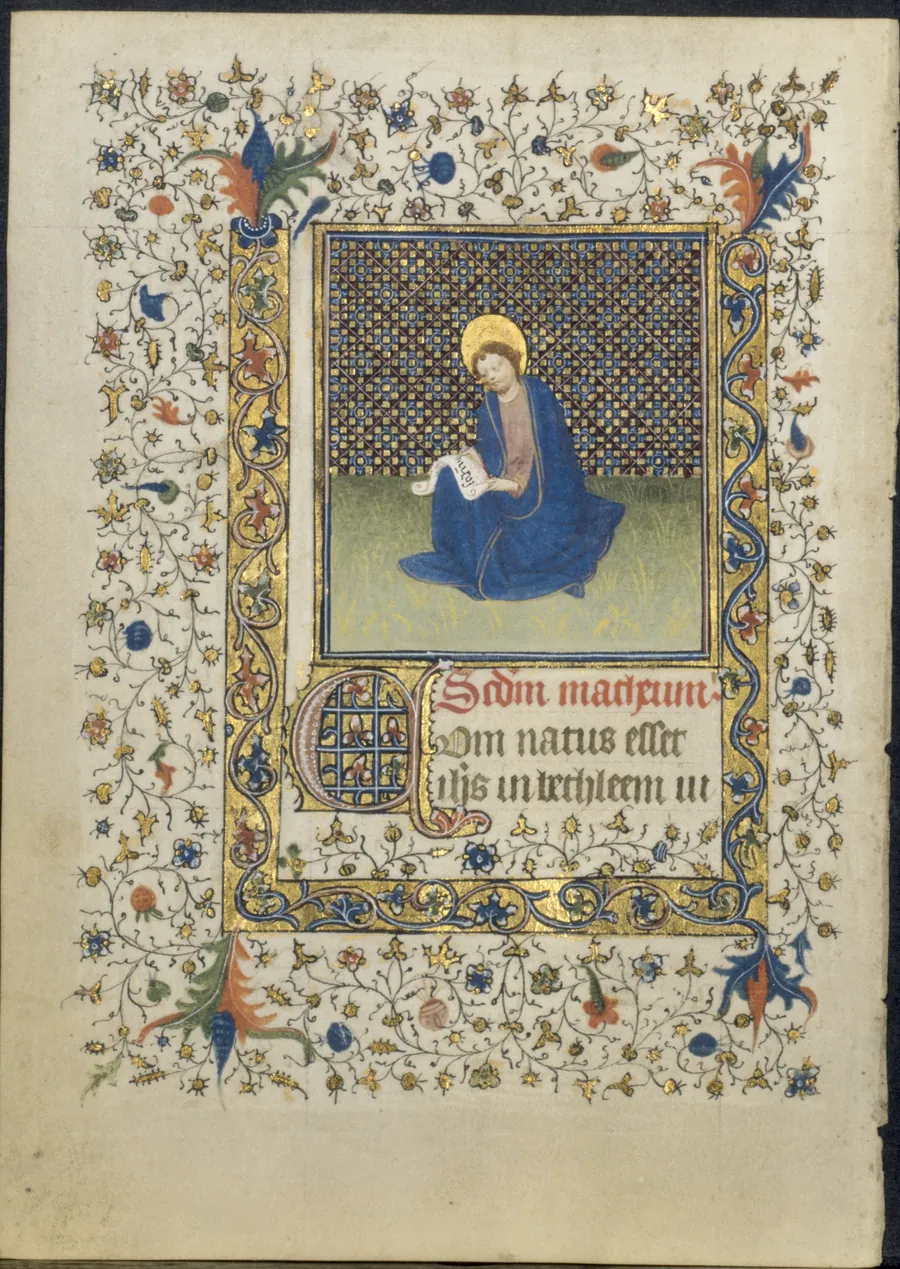 Scdm matheum.
Cum natus esset
ihs in bethleem iu